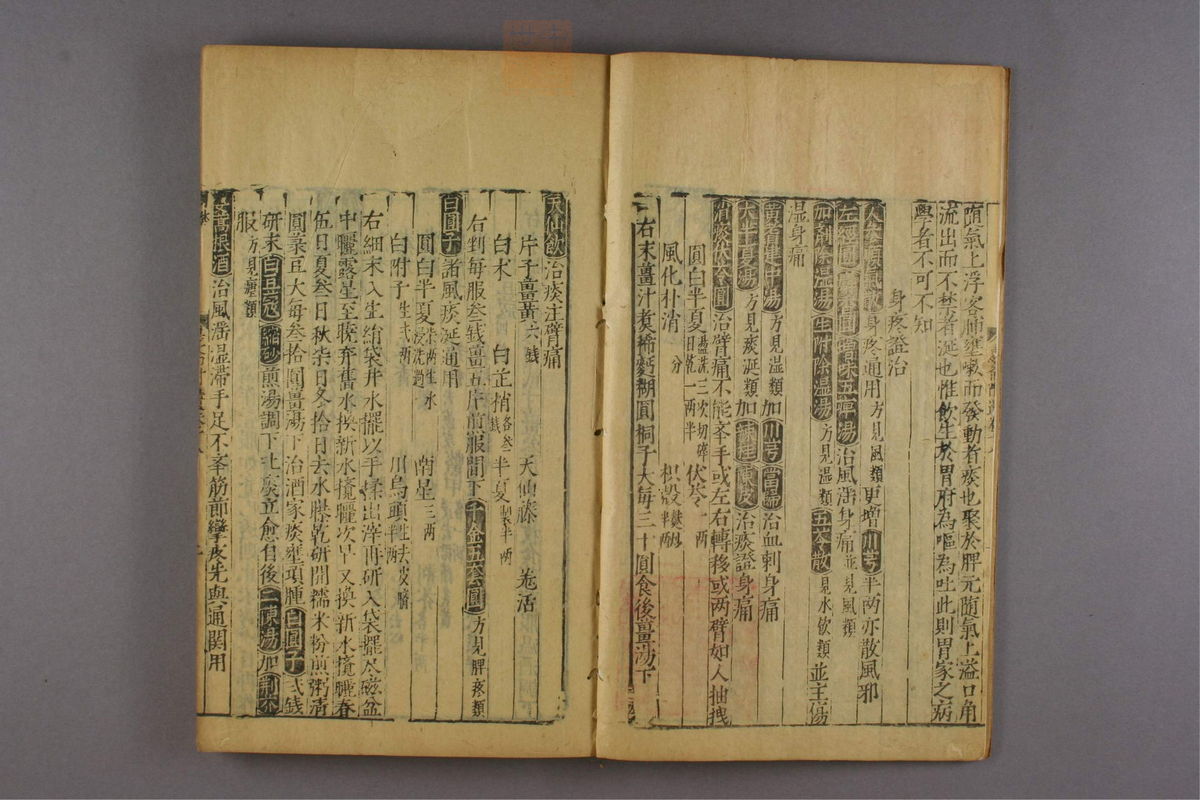 隨氣上浮客肺壅嗽而發動者痰也聚於脾元隨氣上溢口角
流出而不禁者涎也惟飲生於胃府為嘔為吐此則胃家之病
學者不可不知
身疼證治
人參順氣散身疼通用方見風類更增川芎半兩亦散風邪
左經圓 五痺湯治風濕身痛並見風類
加劑除濕湯生附除濕湯方見濕類五苓散見水飲類並主傷
濕身痛
黃耆建中湯方見 類加川芎當歸治血刺身痛
大半夏湯方見痰涎類加辣桂陳皮治痰證身痛
消痰茯苓圓治臂痛不能舉手或左右轉移或兩臂如人抽拽
圓白半夏 湯洗三次切碎 日乾一兩半 伏苓一兩
風化朴消 分 枳殼 半兩
右末薑汁煮稀麪糊圓桐子大每三十圓食後薑湯下
天仙飲治痰注臂痛
片子薑黃六錢 天仙藤 羗活
白朮 白芷梢各叁錢 半夏製半兩
右剉每服叁錢薑五片煎服間下千金五套圓方見脾疼類
白圓子諸風痰涎通用
圓白半夏柒兩生水浸洗過 南星三兩
白附子生弍兩 川烏頭 去皮臍半兩
右細末入生絹袋井水擺以手揉出滓再研入袋擺尽磁盆
中曬露星至曉弃舊水換新水攪曬次早又換新水攪曬春
伍日夏叁日秋柒日冬拾日去水曝乾研開糯米粉煎粥清
圓菉豆大每叁拾圓薑湯下治酒家痰壅項腫白圓子弍錢
研末白豆蔻縮砂煎湯調下吐痰立愈自後二陳湯加制芥
服方見瘧類
蒿根酒治風濟濕滯手足不舉筋節攣皮先與通關用